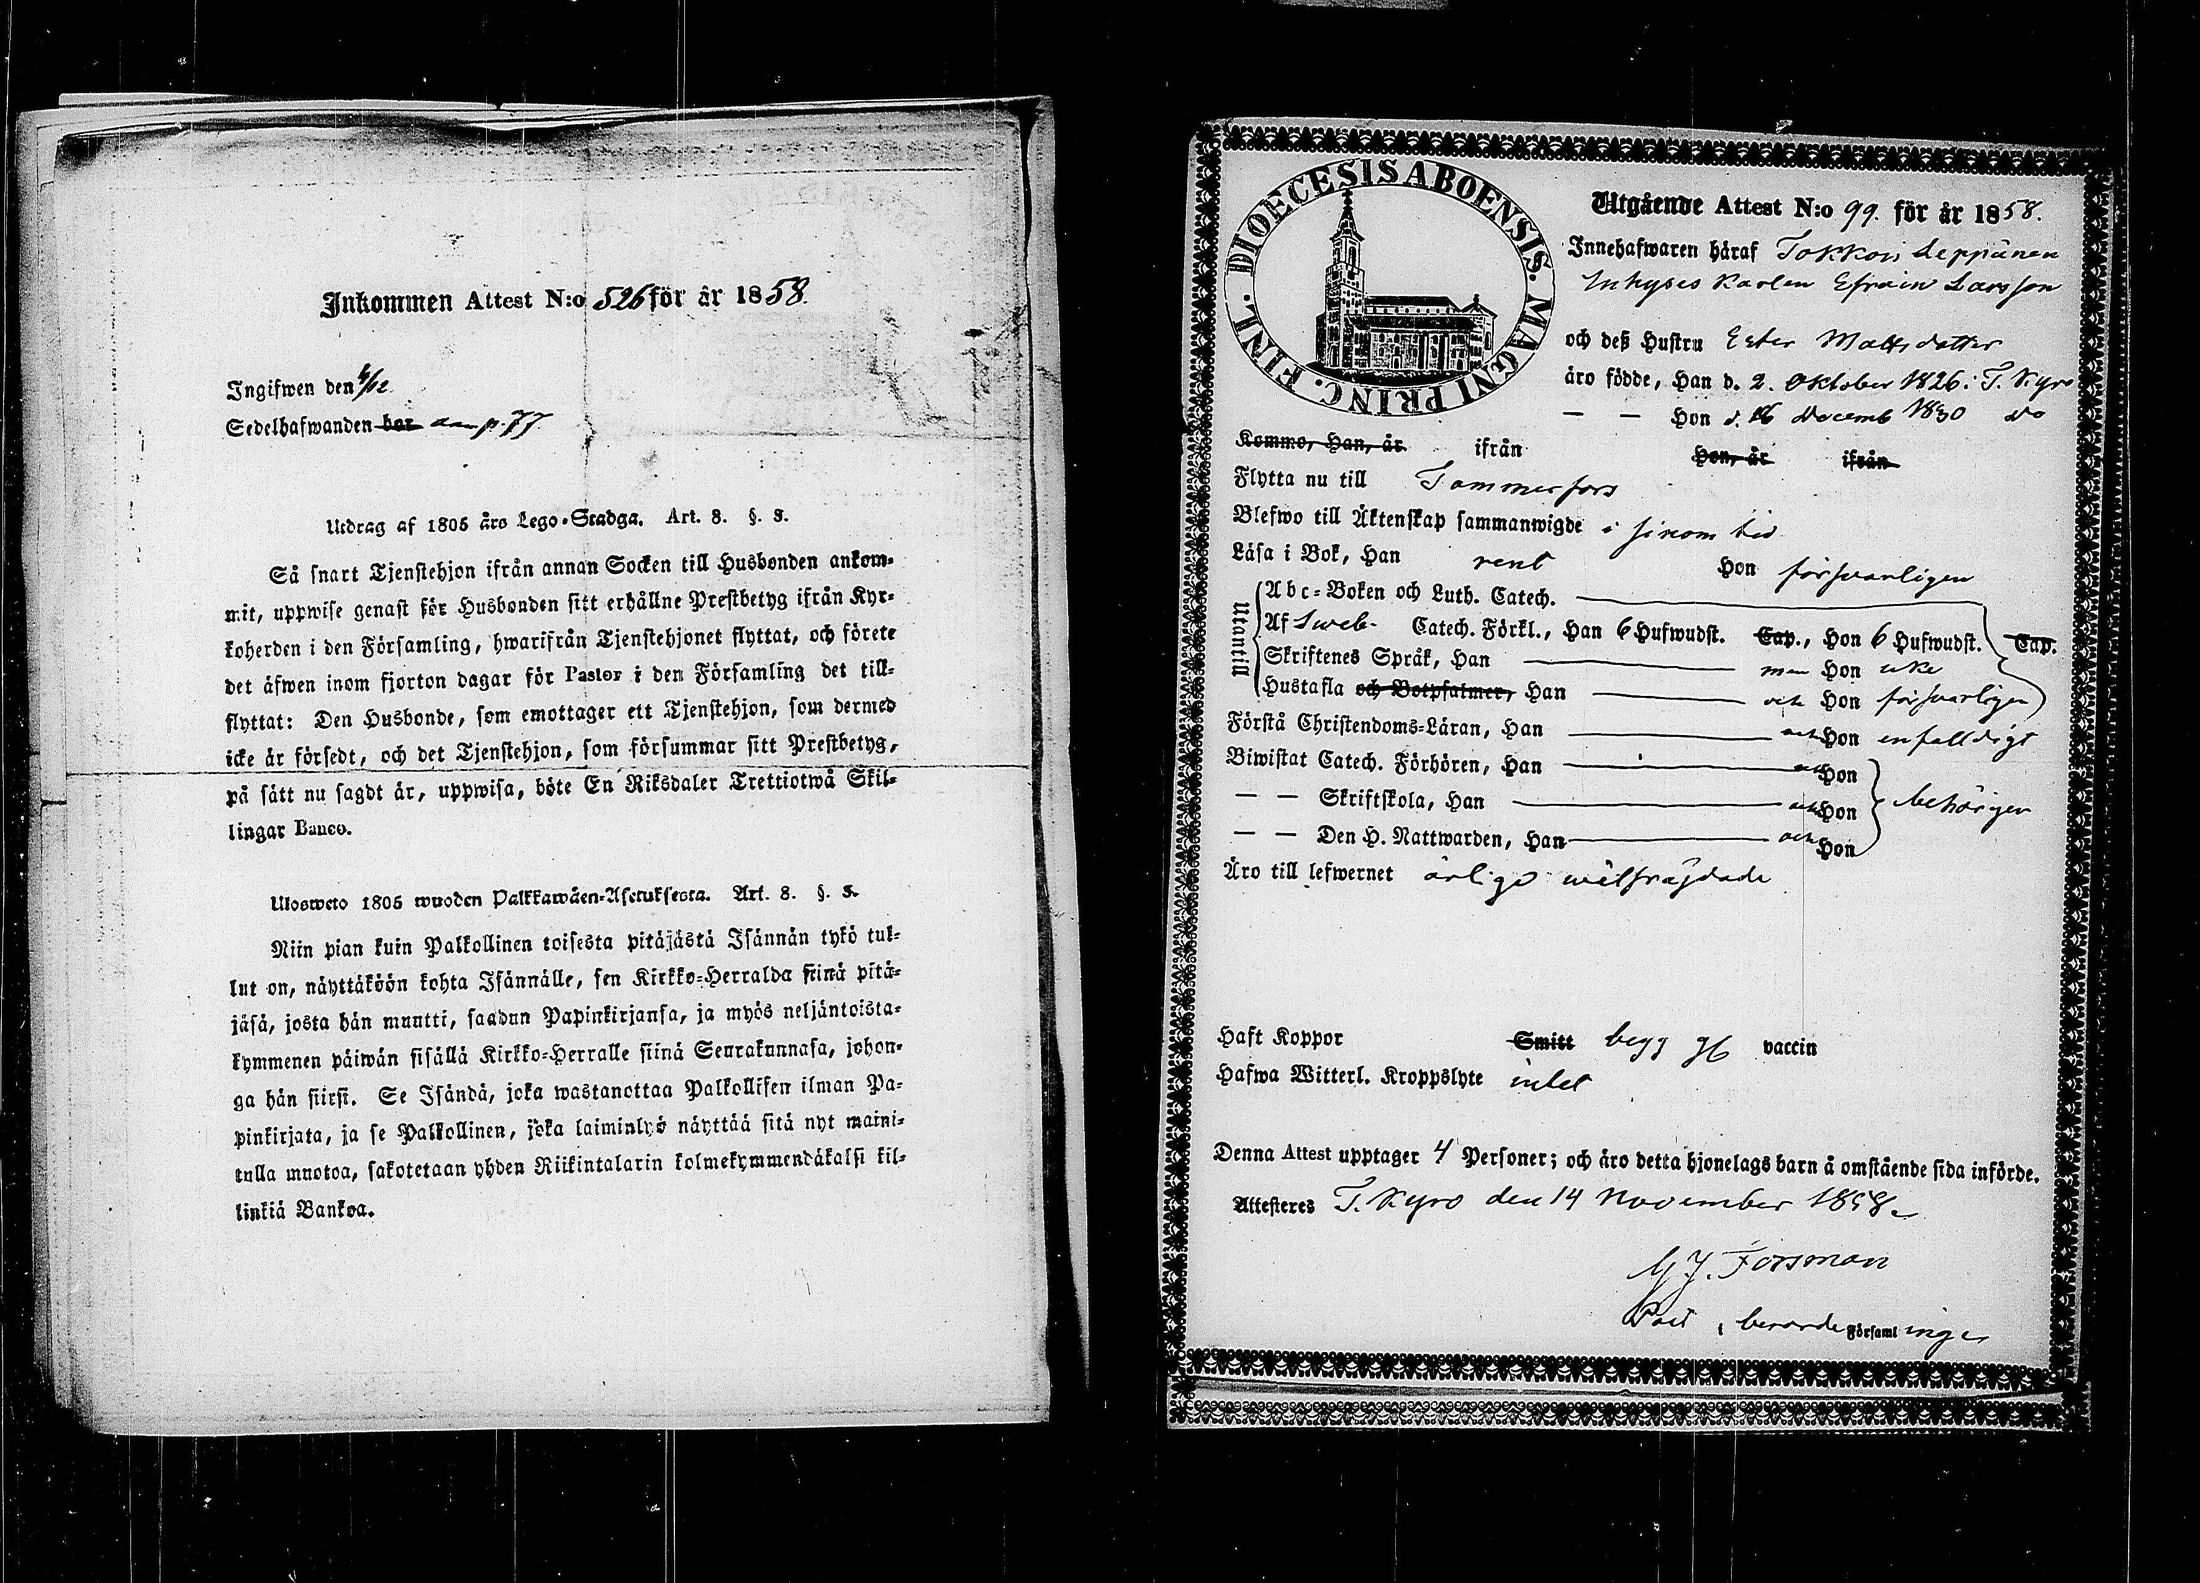 Inkommen Attest N:o 526 för år 1858.
Ingifwen den 4/12
Sedelhafwanden har
Utdrag af 1805 års Lego-Stadga. Art. 8. §. 3.
Så snart Tjenstehjon ifrån annan Socken till Husbonden ankom-
mit, uppwise genast för Husbonden sitt erhållne Prestbetyg ifrån Kyr-
koherden i den Församling, hwarifrån Tjenstehjonet flyttat, och förete
det äfwen inom fjorton dagar för Pastor i den Församling det till-
flyttat: Den Husbonde, som emottager ett Tjenstehjon, som dermed
icke är försedt, och det Tjenstehjon, som försummar sitt Prestbetyg,
på sätt nu sagdt är, uppwisa, böte En Riksdaler Trettiotwå Skil-
lingar Banco.
Ulosweto 1805 wuoden Palkkawäen-Asetuksesta. Art. 8. §. 3.
Niin pian kuin Palkollinen toisesta pitäjästä Isännän tykö tul-
lut on, näyttäköön kohta Isännälle, sen Kirkko-Herralda siinä pitä-
jäsä, josta hän muutti, saadun Papinkirjansa, ja myös neljäntoista-
kymmenen päiwän sisällä Kirkko-Herralle siinä Seurakunnasa, johon-
ga hän siirsi. Se Isändä, joka wastanottaa Palkollisen ilman Pa-
pinkirjata, ja se Palkollinen, joka laiminlyö näyttää sitä nyt maini-
tulla muotoa, sakotetaan yhden Riikintalarin kolmekymmendäkaksi kil-
linkiä Bankoa.
DIOECESIS ABOENSIS. MAGNI PRINC. FINL.
Utgående Attest N:o 99. för år 1858.
Innehafwaren häraf Tokkoi Leppänen
Inhyses Karlen Efraim Larsson
och deß Hustru Ester Mattsdotter
äro födde, Han d. 2. Oktober 1826 i T. Kyro
— — Hon d. 16 Decemb 1830 do
Kommo, Han, år ifrån Hon, år ifrån
Flytta nu till Tammerfors
Blefwo till Äktenskap sammanwigde i sinom tid
Läsa i Bok, Han rent Hon försvarligen
Utantill
Abc-Boken och Luth. Catech.
Af Sveb. Catech. Förkl., Han 6 Hufwudst. Cap., Hon 6 Hufwudst. Cap.
Skriftenes Språk, Han — men Hon icke
Hustafla och Botpsalmer, Han — och Hon försvarligen
Förstå Christendoms-Läran, Han — och Hon enfalldigt
Biwistat Catech. Förhören, Han — och Hon
— — Skriftskola, Han — och Hon behörigen
— — Den H. Nattwarden, Han — och Hon
Äro till lefwernet ärlige wälfrägdade
Haft Koppor Smitt begg gh vaccin
Hafwa Witterl. Kroppslyte intet
Denna Attest upptager 4 Personer; och äro detta hjonelags barn å omstående sida införde.
Attesteres T. Kyro den 14 November 1858.
M J. Forsman
Past i berörde Församlingen